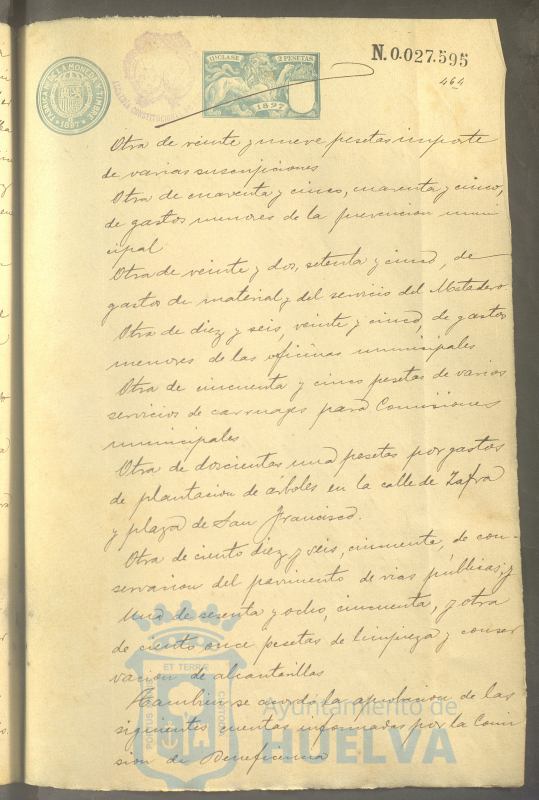 FABRICA N. DE LA MONEDA Y TIMBRE
1897
ALCALDIA CONSTITUCIONAL
11ª CLASE
2 PESETAS
1897
N.0.027.595
464
Otra de veinte y nueve pesetas importe
de varias suscripciones
Otra de cuarenta y cinco, cuarenta y cinco,
de gastos menores de la prevencion muni
cipal
Otra de veinte y dos, setenta y cinco, de
gastos de material y del servicio del Matadero.
Otra de diez y seis, veinte y cinco, de gastos
menores de las oficinas municipales
Otra de cincuenta y cinco pesetas de varios
servicios de carruages para Comisiones
municipales
Otra de doscientas una pesetas por gastos
de plantacion de árboles en la calle de Zafra
y plaza de San Francisco.
Otra de ciento diez y seis, cincuenta, de con-
servacion del pavimento de vias públicas; y
Una de sesenta y ocho, cincuenta, y otra
de ciento once pesetas de limpieza y conser
vacion de alcantarillas
Tambien se acordó la aprobacion de las
siguientes cuentas informadas por la Comi
sion de Beneficencia
PORTUS MARIS ET TERRÆ CUSTODIA
Ayuntamiento de
HUELVA